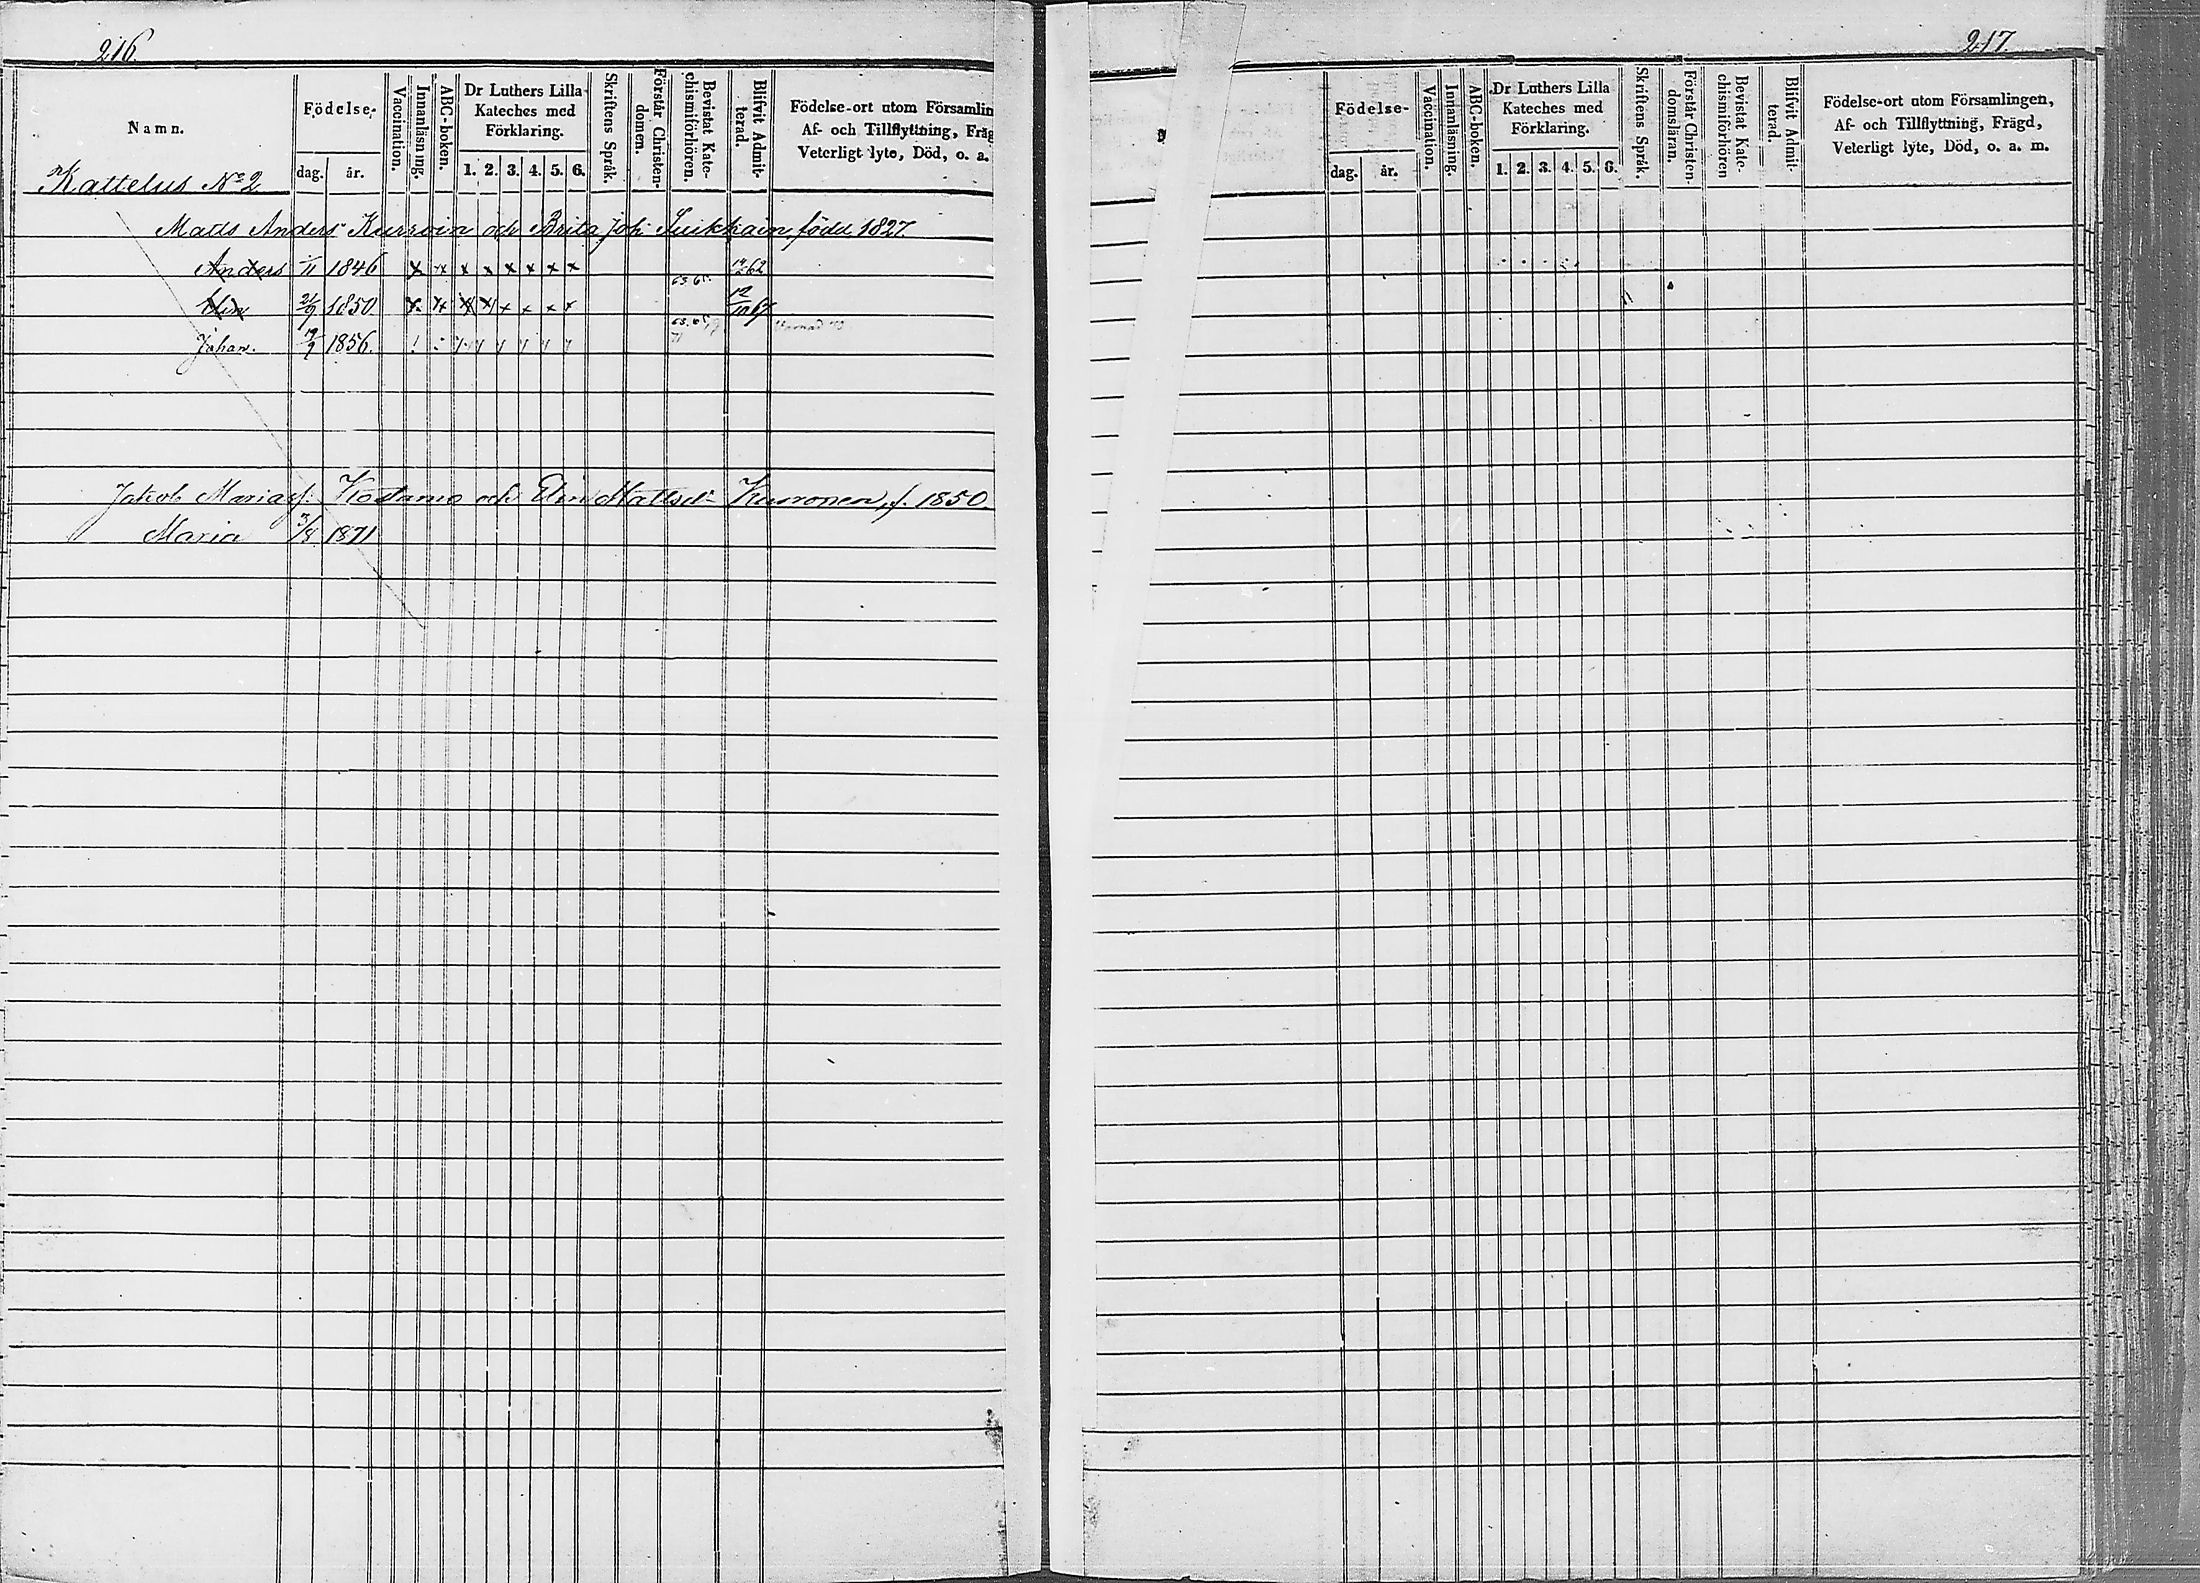 216.
Namn.
Födelse-
dag.
år.
Vaccination.
Innanläsning.
ABC-boken.
Dr Luthers Lilla
Kateches med
Förklaring.
1. 2. 3. 4. 5. 6.
Skriftens Språk.
Förstår Christen-
domen.
Bevistat Kate-
chismiförhören.
Blifvit Admit-
terad.
Födelse-ort utom Församlin
Af- och Tillflyttning, Fräg
Veterligt lyte, Död, o. a.
Kattelus No 2
Matts Anders Kurvoin och Brita Joh. Suikkain född 1827.
Anders /11 1846 x x x x x x x x 62
63. 65.
Elin 21/9 1850 x x x x x x x x 12/10 67
63. 65.
Johan. 19/9 1856.
Jakob Mariæ f. Kostamo och Elin Mattsd. Kuronen, f. 1850.
Maria 3/8 1871
217.
Födelse-
dag.
år.
Vaccination.
Innanläsning.
ABC-boken.
Dr Luthers Lilla
Kateches med
Förklaring.
1. 2. 3. 4. 5. 6.
Skriftens Språk.
Förstår Christen-
domsläran.
Bevistat Kate-
chismiförhören
Blifvit Admit-
terad.
Födelse-ort utom Församlingen,
Af- och Tillflyttning, Frägd,
Veterligt lyte, Död, o. a. m.